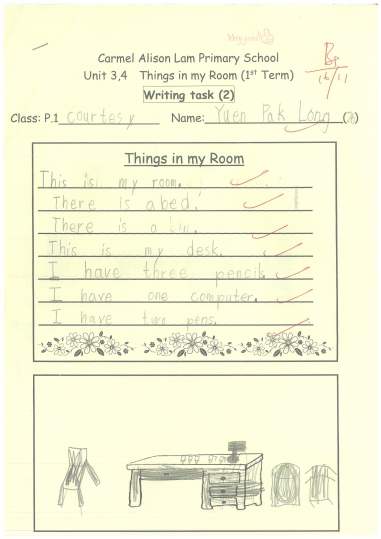 Very good
Carmel Alison Lam Primary School
Unit 3,4 Things in my Room (1st Term)
16/11
Writing task (2)
Class: P.1 courtesy Name: Yuen Pak Long ( )
Things in my Room
This is my room.
There is a bed.
There is a bin.
This is my desk.
I have three pencils.
I have one computer.
I have two pens.